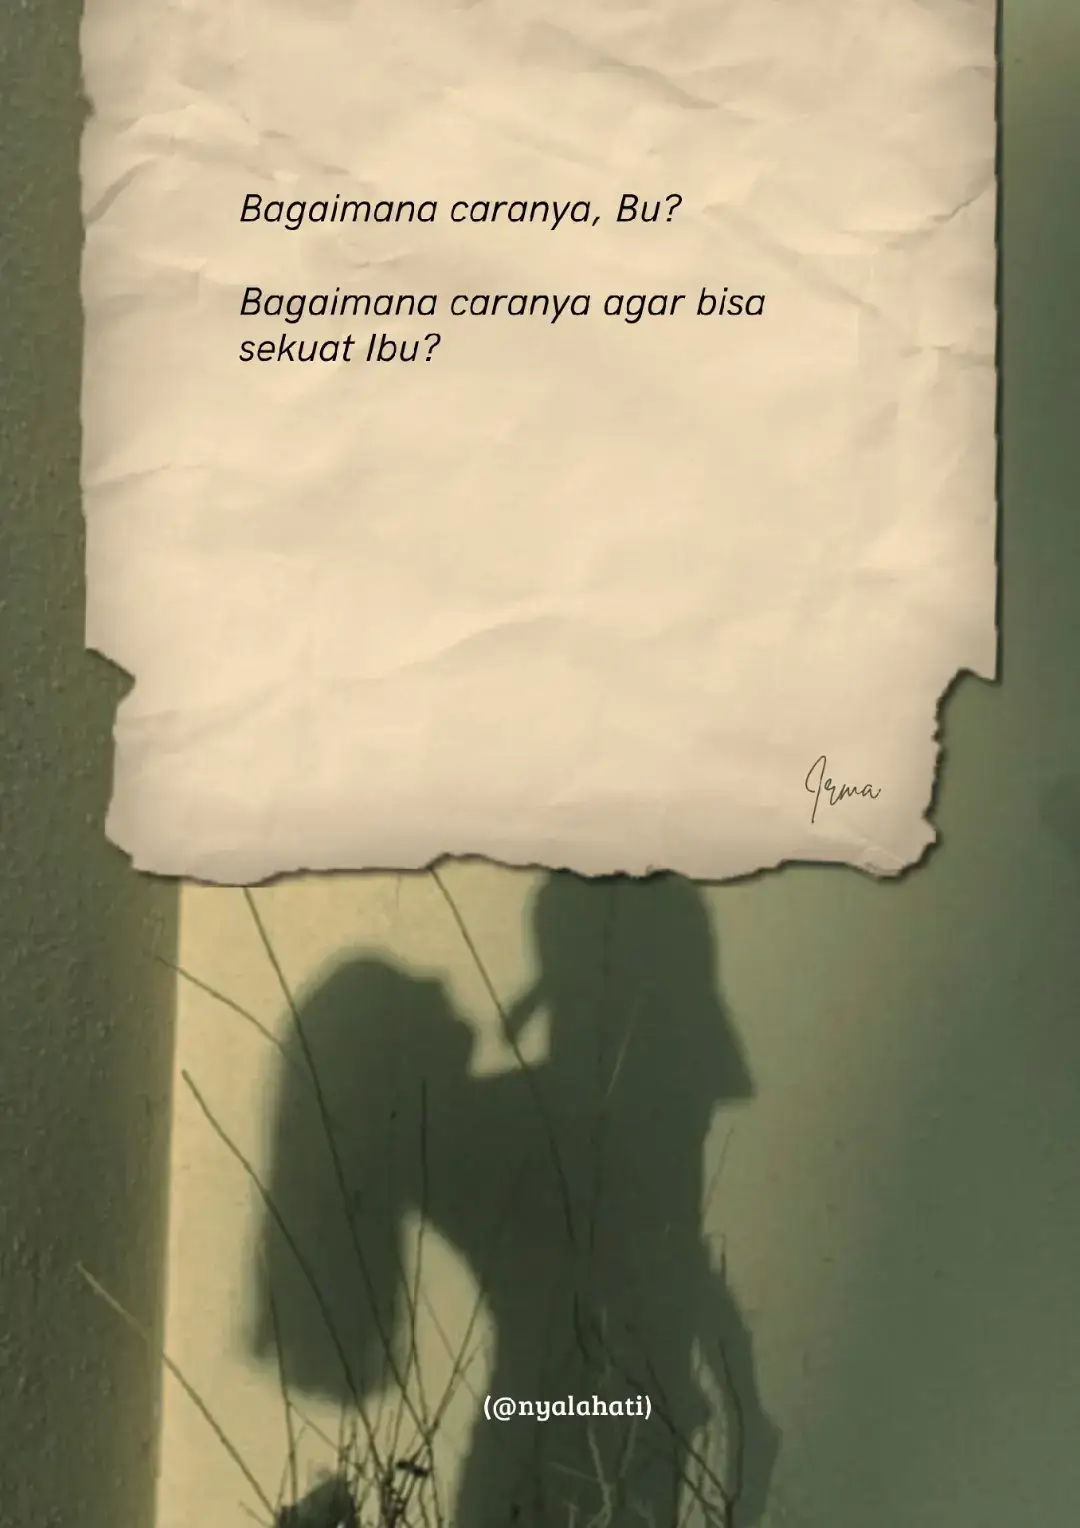 Bagaimana caranya, Bu?
Bagaimana caranya agar bisa
sekuat Ibu?
Irma
(@nyalahati)